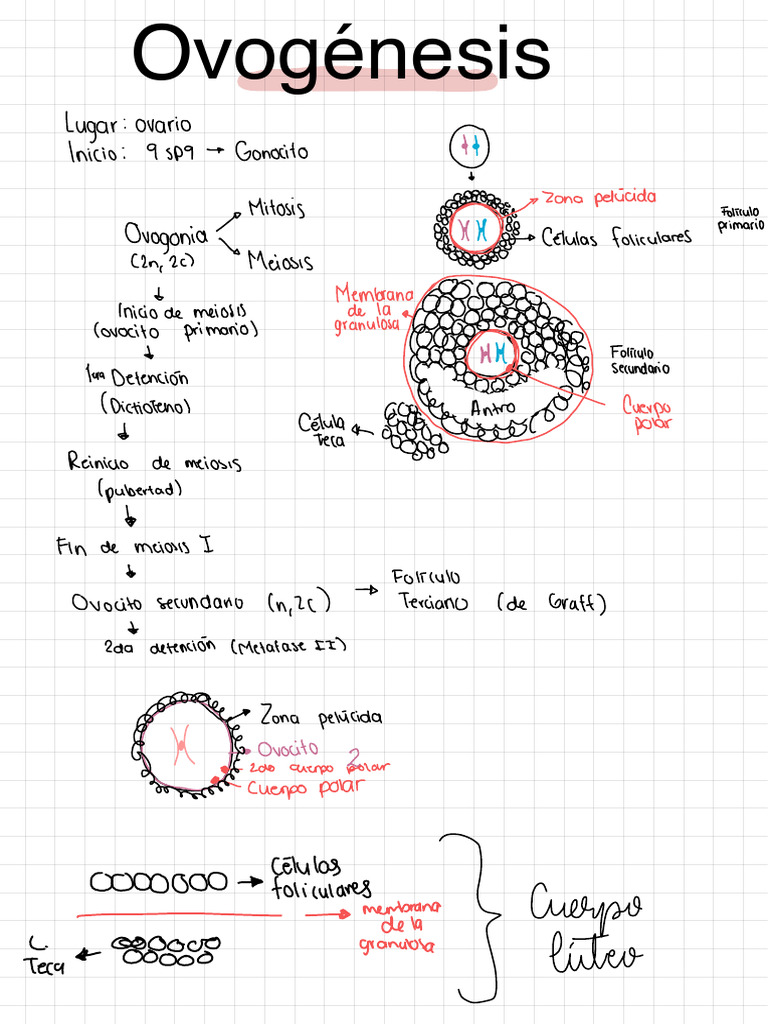 Ovogénesis
Lugar: ovario
Inicio: 9 spg → Gonocito
Ovogonia
(2n, 2c)
Mitosis
Meiosis
Inicio de meiosis
(ovocito primario)
1era Detención
(Dictioteno)
Reinicio de meiosis
(pubertad)
Fin de meiosis I
Ovocito secundario (n,2c) → Folículo
Terciario (de Graff)
2da detención (Metafase II)
Zona pelúcida
Células foliculares
Folículo
primario
Membrana
de la
granulosa
Folículo
secundario
Antro
Cuerpo
polar
Célula
Teca
Zona pelúcida
Ovocito 2
2do cuerpo polar
Cuerpo polar
Células
foliculares
membrana
de la
granulosa
C.
Teca
Cuerpo
lúteo